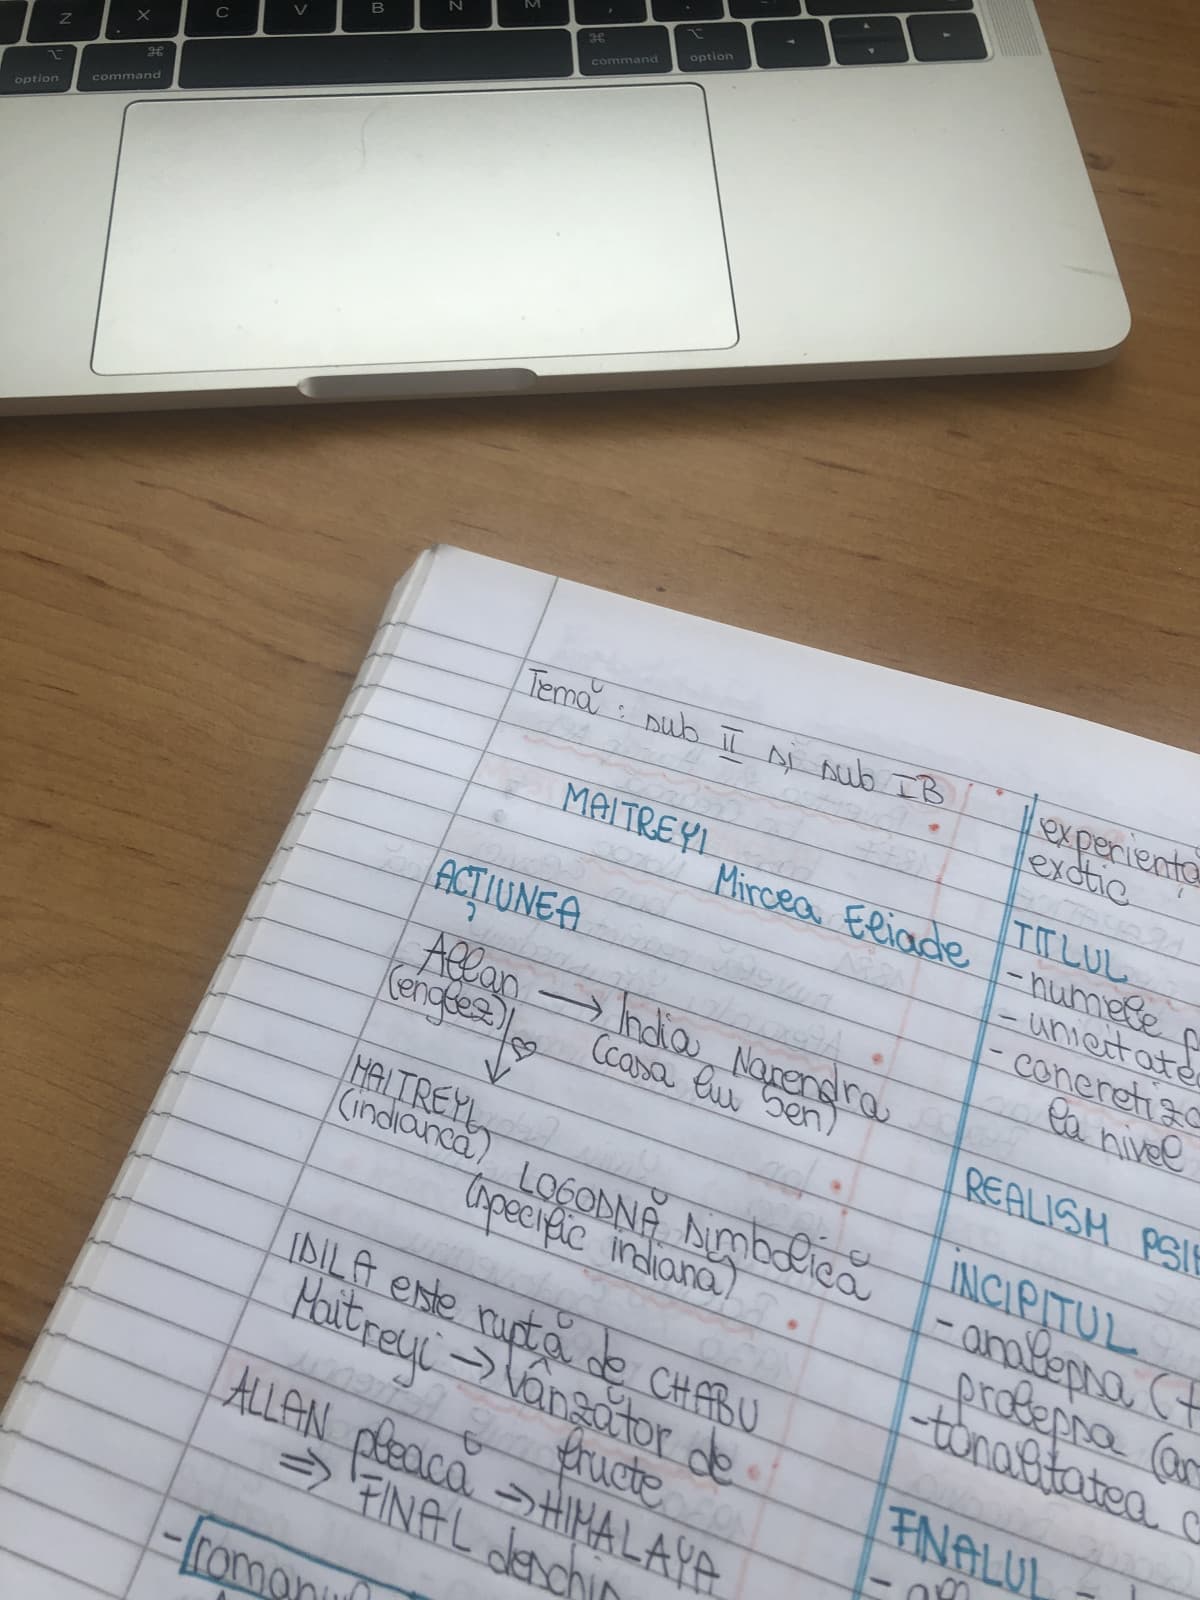 Z X C V B N M
option command command option
Temă : sub II și sub IB
MAITREYI
Mircea Eliade
ACȚIUNEA
Allan → India Narendra
(englez) (casa lui Sen)
MAITREYI
(indiancă)
LOGODNĂ simbolică
(specific indiană)
IDILA este ruptă de CHABU
Maitreyi → vânzător de
fructe
ALLAN pleacă → HIMALAYA
⇒ FINAL deschis
- romanul
experiență
exotic
TITLUL
- numele
- unicitatea
-
la nivel
REALISM
INCIPITUL
- analepsa
prolepsa
- tonalitatea
FINALUL -